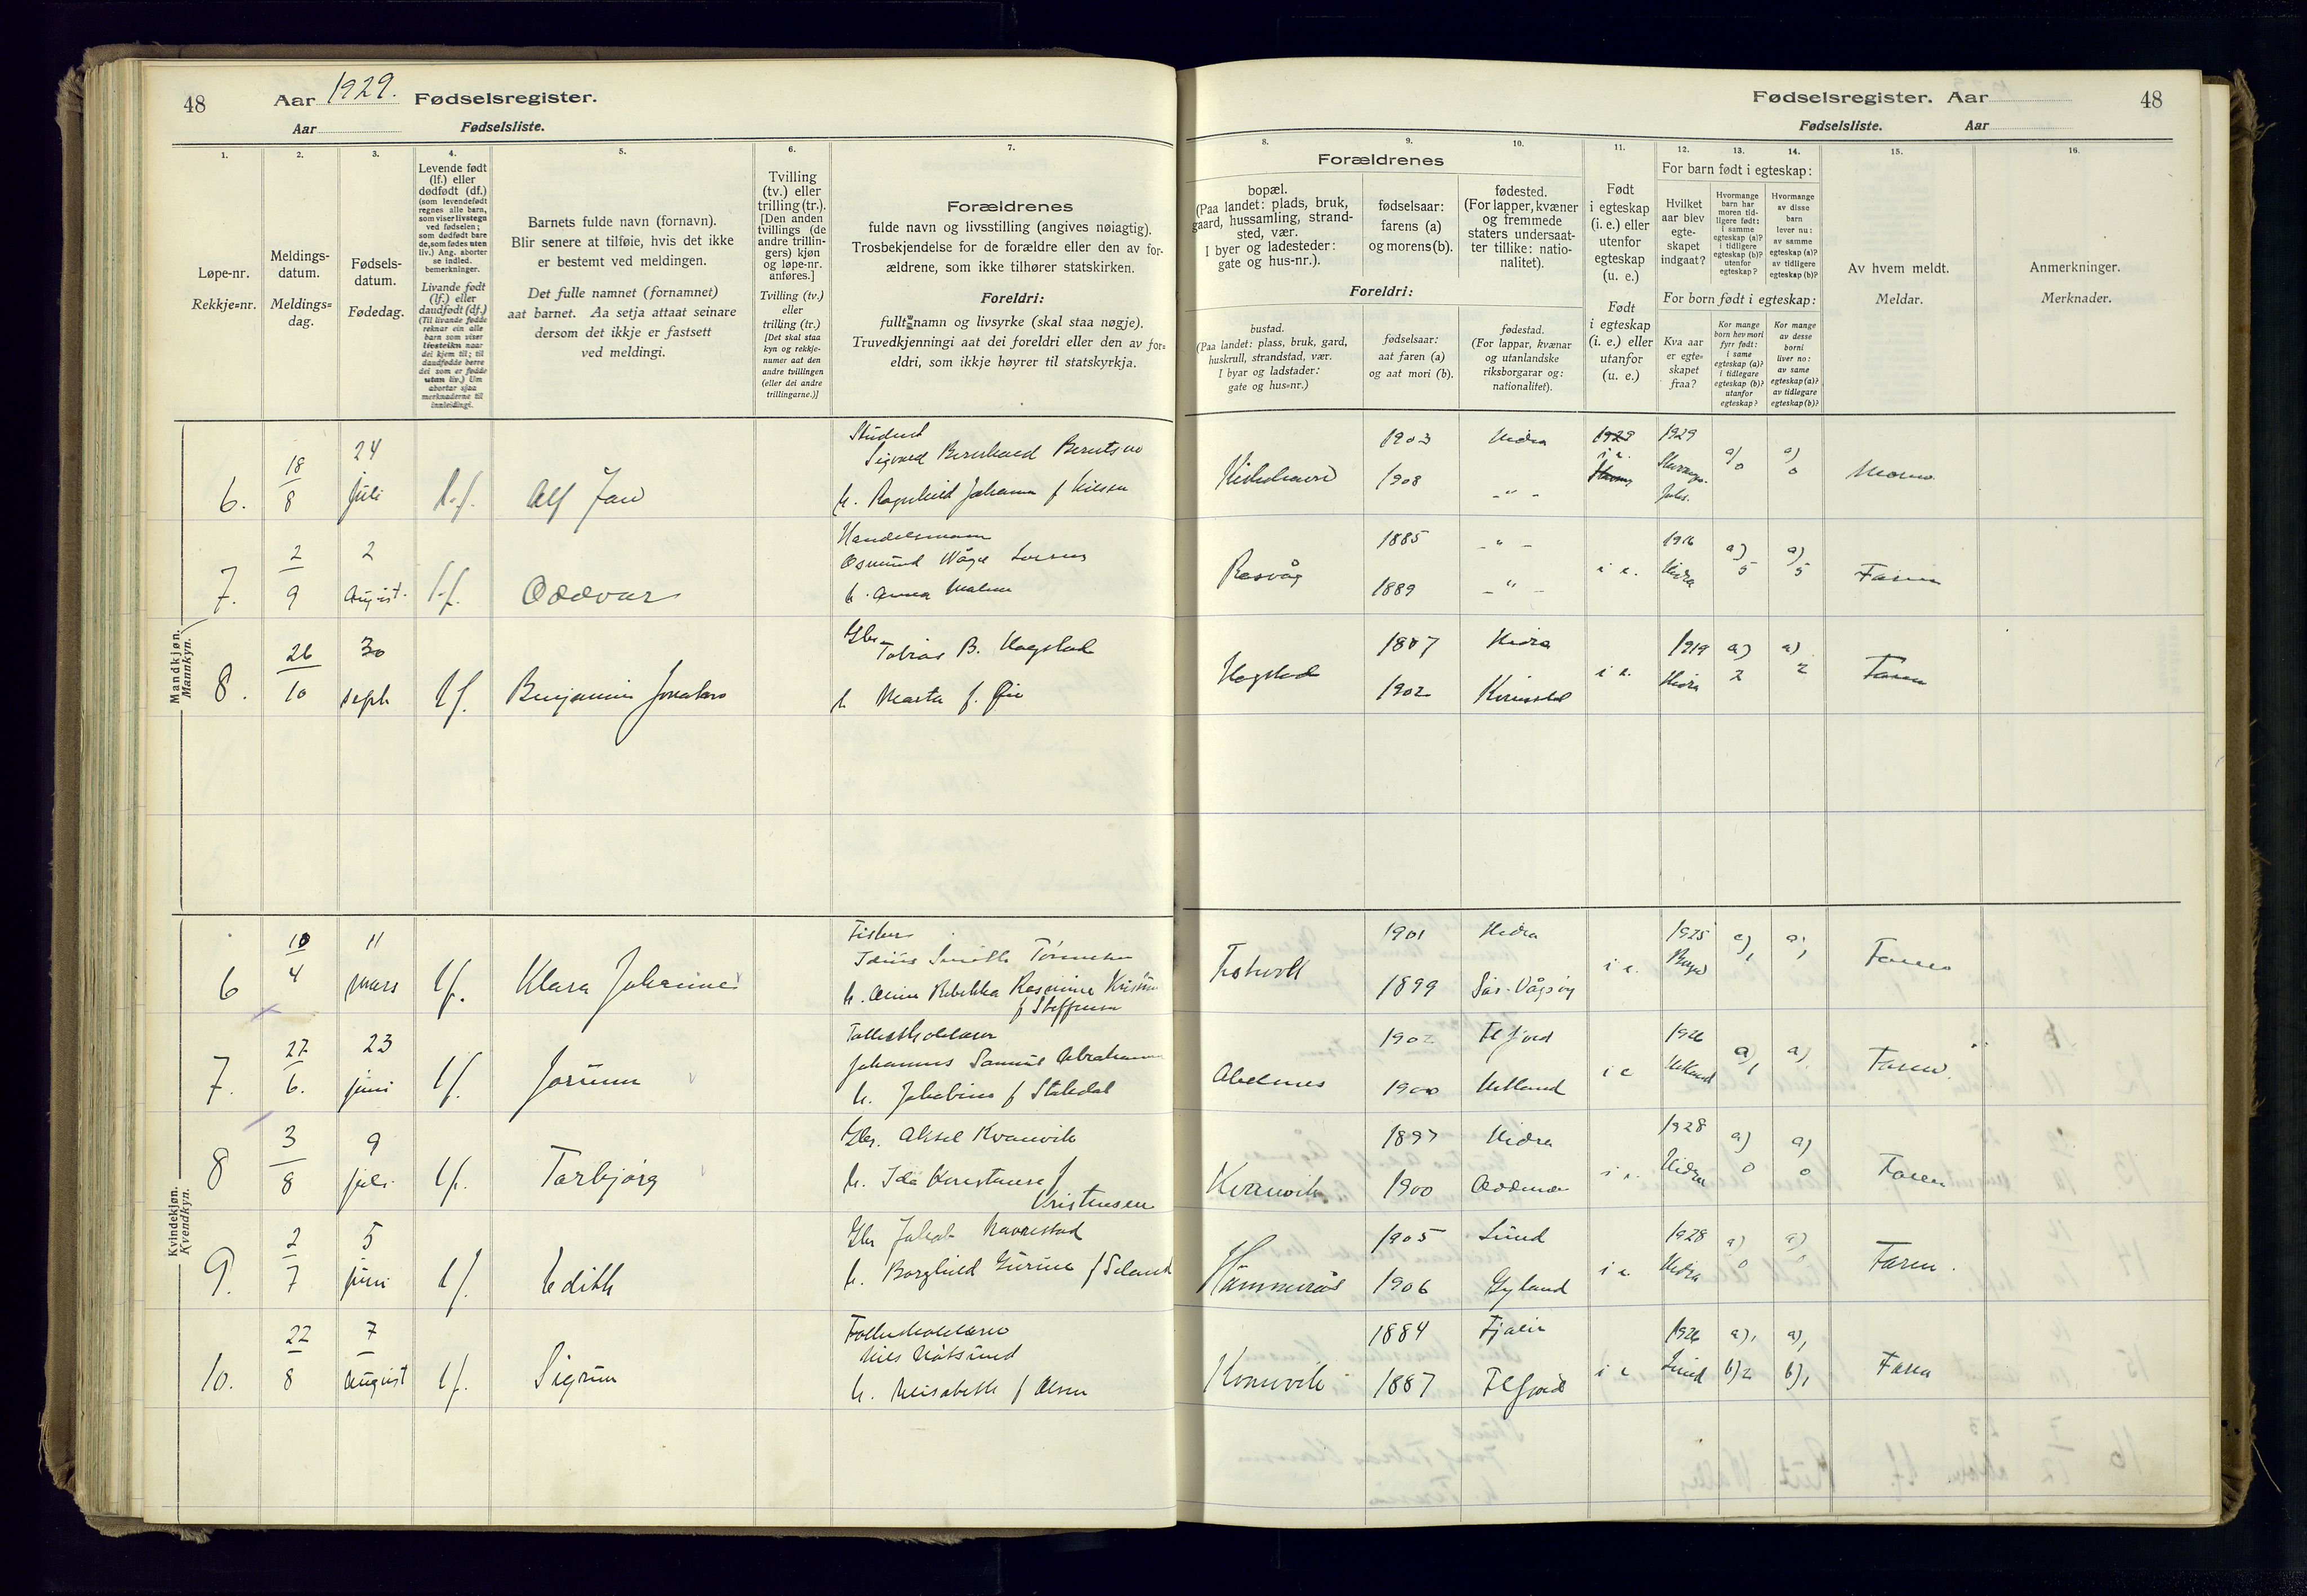 48
Aar 1929. Fødselsregister.
Aar Fødselsliste.
Fødselsregister. Aar
48
Fødselsliste. Aar
1.
Løpe-nr.
Rekkje=nr.
2.
Meldings-
datum.
Meldings=
dag.
3.
Fødsels-
datum.
Fødedag.
4.
Levende født
(lf.) eller
dødfødt (df.)
(som levendefødt
regnes alle barn,
som viser livstegn
ved fødselen;
som dødfødt bare
de, som fødes uten
liv.) Ang. aborter
se indled.
bemerkninger.
Livande født
(lf.) eller
daudfødt (df.)
(Til livande fødde
reknar ein alle
barn som viser
livsteikn naar
dei kjem til; til
daudfødde berre
dei som er fødde
utan liv.) Um
abortar sjaa
merknaderne til
innleidingi.
5.
Barnets fulde navn (fornavn).
Blir senere at tilføie, hvis det ikke
er bestemt ved meldingen.
Det fulle namnet (fornamnet)
aat barnet. Aa setja attaat seinare
dersom det ikkje er fastsett
ved meldingi.
6.
Tvilling
(tv.) eller
trilling (tr.).
[Den anden
tvillings (de
andre trillin-
gers) kjøn
og løpe-nr.
anføres.]
Tvilling (tv.)
eller
trilling (tr.)
[Det skal staa
kyn og rekkje-
numer aat den
andre tvillingen
(eller dei andre
trillingarne.)]
7.
Forældrenes
fulde navn og livsstilling (angives nøiagtig).
Trosbekjendelse for de forældre eller den av for-
ældrene, som ikke tilhører statskirken.
Foreldri:
fullt namn og livsyrke (skal staa nøgje).
Truvedkjenningi aat dei foreldri eller den av for=
eldri, som ikkje høyrer til statskyrkja.
Forældrenes
8.
bopæl.
(Paa landet: plads, bruk,
gaard, hussamling, strand-
sted, vær.
I byer og ladesteder:
gate og hus-nr.).
9.
fødselsaar:
farens (a)
og morens(b).
10.
fødested.
(For lapper, kvæner
og fremmede
staters undersaat-
ter tillike: natio-
nalitet).
Foreldri:
bustad.
(Paa landet: plass, bruk, gard,
huskrull, strandstad, vær.
I byar og ladstader:
gate og hus=nr.)
fødselsaar:
aat faren (a)
og aat mori (b).
fødestad.
(For lappar, kvænar
og utanlandske
riksborgarar og:
nationalitet).
11.
Født
i egteskap
(i. e.) eller
utenfor
egteskap
(u. e.)
Født
i egteskap
(i. e.) eller
utanfor
egteskap
(u. e.)
12. 13. 14.
For barn født i egteskap:
Hvilket
aar blev
egte-
skapet
indgaat?
Hvormange
barn har
moren tid-
ligere født:
i samme
egteskap (a)?
i tidligere
egteskap (b)?
utenfor
egteskap?
Hvormange
av disse
barn
lever nu:
av samme
egteskap (a)?
av tidligere
egteskap (b)?
For born født i egteskap:
Kva aar
er egte=
skapet
fraa?
Kor mange
born hev mori
fyrr født:
i same
egteskap (a)?
i tidlegare
egteskap (b)?
utanfor
egteskap?
Kor mange
av desse
borni
liver no:
av same
egteskap (a)?
av tidlegare
egteskap (b)?
15.
Av hvem meldt.
Meldar.
16.
Anmerkninger.
Merknader.
Mandkjøn.
Mannkyn.
6. 18/8 24 juli l.f. Alf Jan
Student
Sigvard Bernhard Berntsen
h. Ragnhild Johanne f Nilsen
Kirkehavn 1903 Hidra
1908 -"-
1929 i e. 1929 a) 0 a) 0 Moren
7. 2/9 2 August l.f. Oddvar
Handelsmann
Osmund Våge
h. Anna Malene
Rasvåg 1885 -"-
1889 -"-
i e. 1916 Hidra a) 5 a) 5 Faren
8. 26/10 30 sept lf. Benjamin Jonatan
Gbr.
Tobias B. Hogstad
h Marta f. Øie
Hogstad 1887 Hidra
1902
i e. 1919 Hidra a) 2 a) 2 Faren
Kvindekjøn.
Kvendkyn.
6 10/4 11 mars lf. Klara Johanne
Fisker
Smith Tønnesen
h. Rebekka Rasmine
f Steffensen
1901 Hidra
1899 Sør-Vågsøy
i e. 1925 a) 1 a) 1 Faren
7. 27/6. 23 juni lf. Jorunn
Johannes Samuel Abrahamsen
h. Jakobine f Stakdal
Abelnes 1902
1900 Hetland
i e 1926 Hetland a) 1 a) 1 Faren
8 3/8 9 juli lf. Torbjørg
Gbr. Aksel Kvanvik
h. Ida Konstanse f
Kristensen
Kvanvik 1897 Hidra
1900 Oddernes
i e. 1928 Hidra a) 0 a) 0 Faren
9. 2/7 5 juni lf. Edith
Gbr Jakob Navrestad
h. Borghild Gurine f Seland
Hammerås 1905 Lund
1906 Gyland
i e. 1928 Hidra a) 0 a) 0 Faren.
10. 22/8 7 August lf. Sigrun
h. Elisabeth f Olsen
Kvanvik 1884 Fjaler
1887
i e 1926 Lund a) 1 b) 2 a) 1 b) 1 Faren